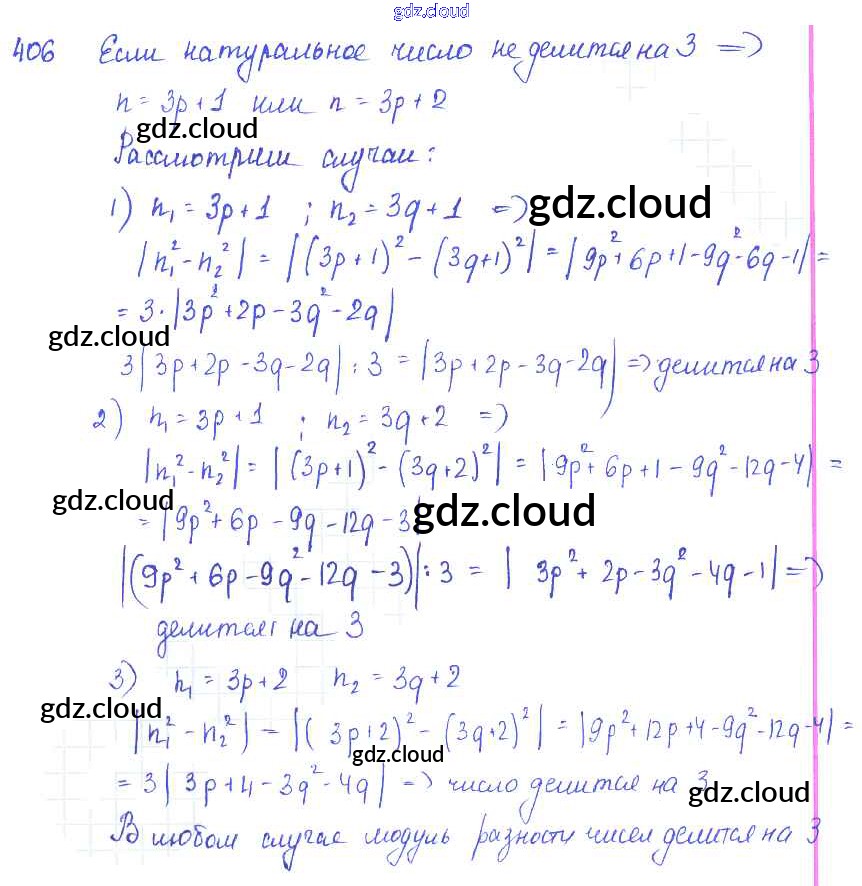 gdz.cloud
406 Если натуральное число не делится на 3 =>
n = 3p + 1 или n = 3p + 2
gdz.cloud
Рассмотрим случаи:
1) n₁ = 3p + 1 ; n₂ = 3q + 1 => gdz.cloud
|n₁² - n₂²| = |(3p + 1)² - (3q+1)²| = |9p² + 6p + 1 - 9q² - 6q - 1| =
= 3·|3p² + 2p - 3q² - 2q|
gdz.cloud
3|3p + 2p - 3q - 2q| : 3 = |3p + 2p - 3q - 2q| => делится на 3
2) n₁ = 3p + 1 ; n₂ = 3q + 2 =>
|n₁² - n₂²| = |(3p+1)² - (3q+2)²| = |9p² + 6p + 1 - 9q² - 12q - 4| =
gdz.cloud
= |9p² + 6p - 9q - 12q - 3| gdz.cloud
|(9p² + 6p - 9q² - 12q - 3)| : 3 = | 3p² + 2p - 3q² - 4q - 1| =>
делится на 3
3) n₁ = 3p + 2 n₂ = 3q + 2
gdz.cloud
|n₁² - n₂²| = |(3p+2)² - (3q+2)²| = |9p² + 12p + 4 - 9q² - 12q - 4| =
gdz.cloud
= 3| 3p + 4 - 3q² - 4q| => число делится на 3
gdz.cloud
В любом случае модуль разности чисел делится на 3